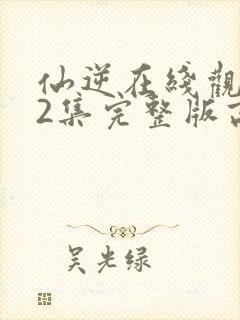 仙逆在线觀
2集完整版
吴光绿